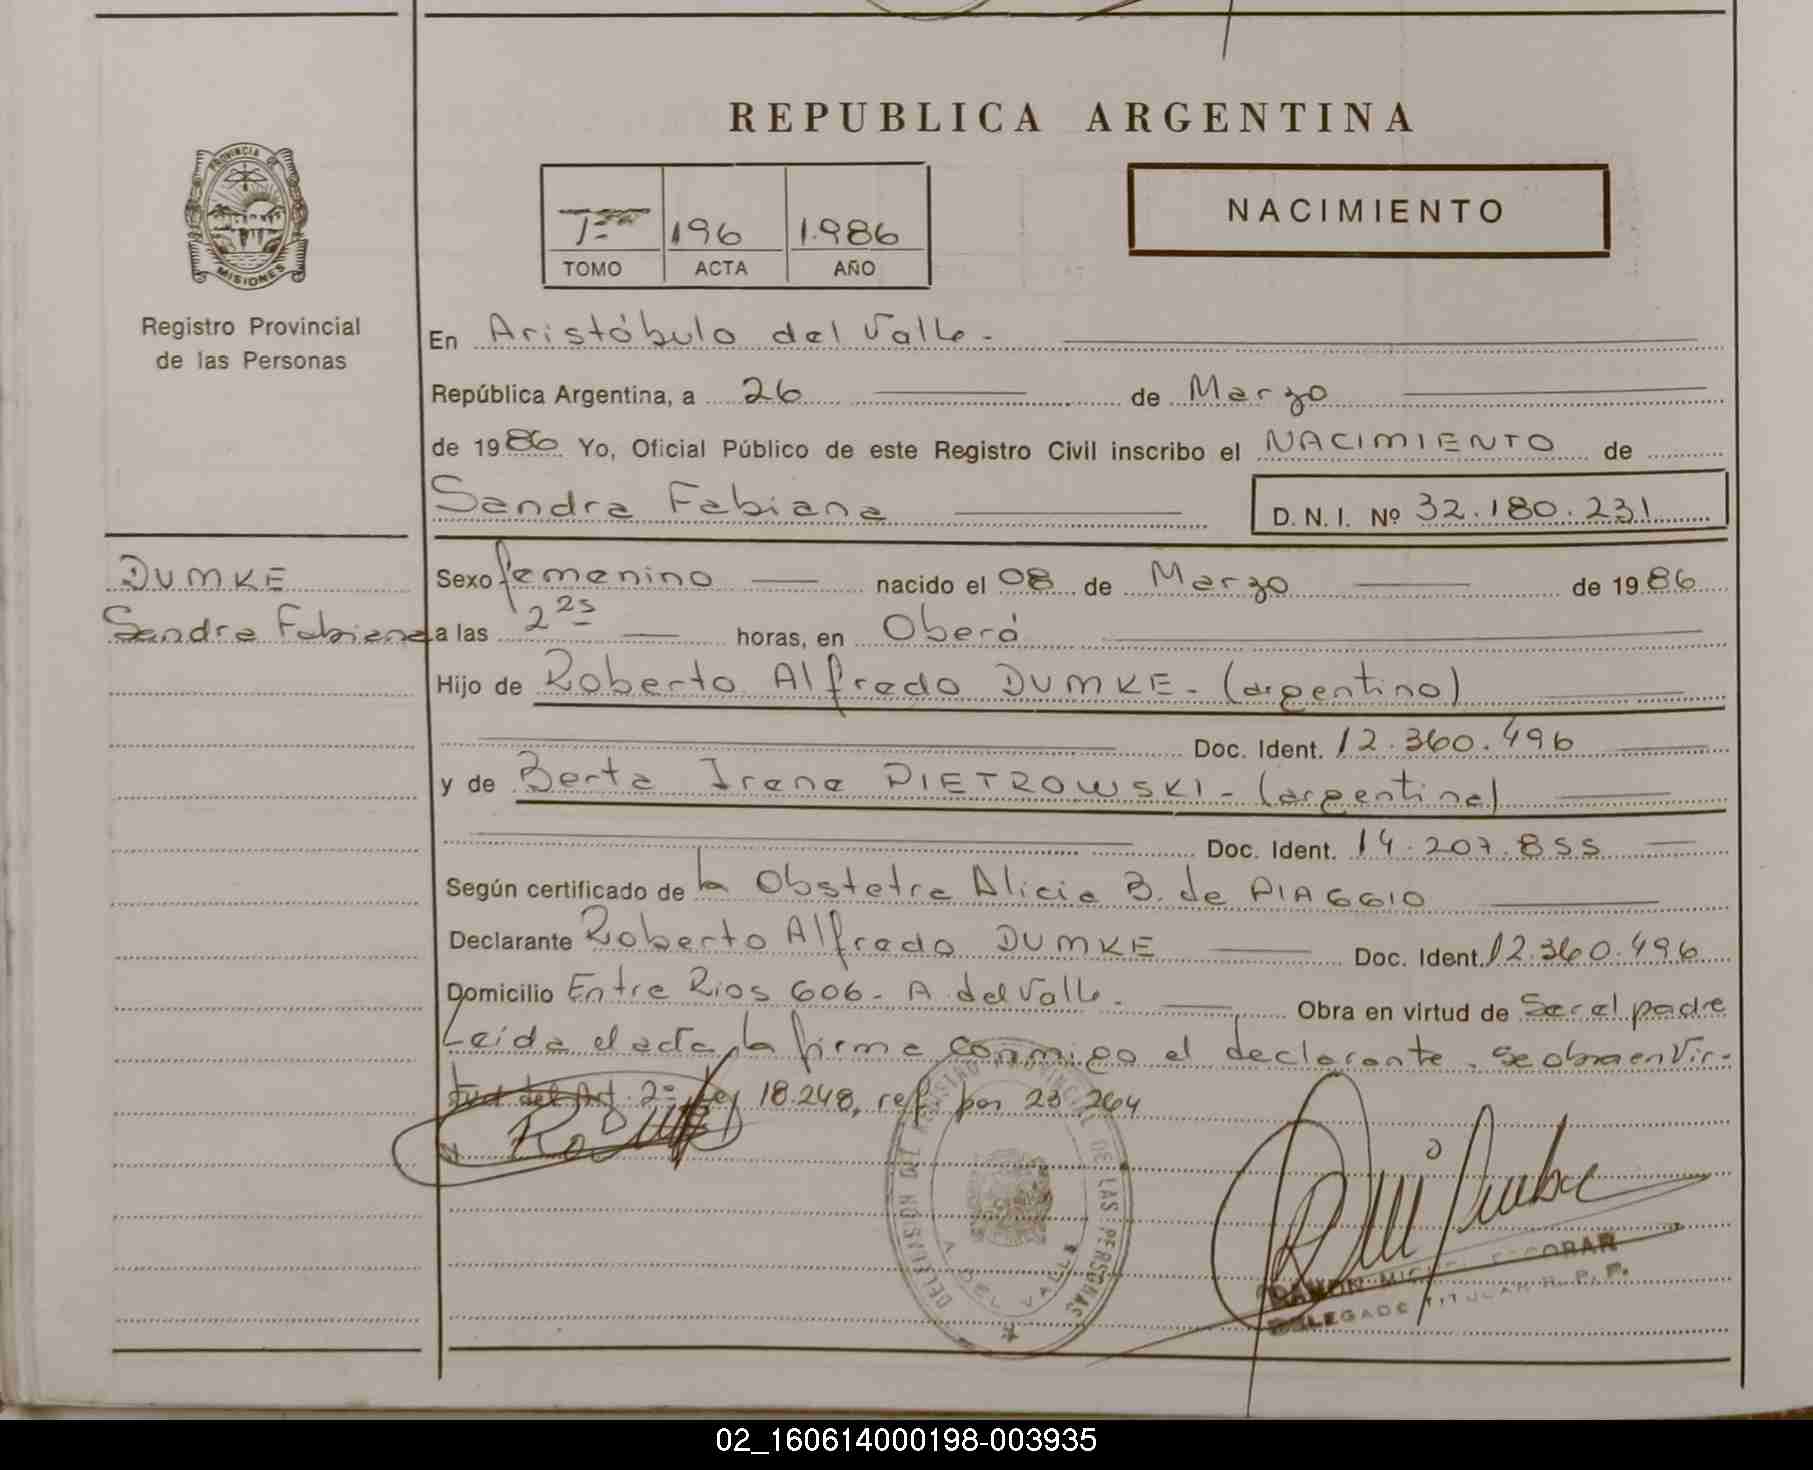 REPUBLICA ARGENTINA
PROVINCIA DE
MISIONES
Registro Provincial
de las Personas
196 1.986
TOMO ACTA AÑO
NACIMIENTO
En Aristóbulo del Valle.
República Argentina, a 26 de Marzo
de 1986 Yo, Oficial Público de este Registro Civil inscribo el NACIMIENTO de
Sandra Fabiana D. N. I. Nº 32.180.231
DUMKE
Sandra Fabiana
Sexo femenino nacido el 08 de Marzo de 1986
a las 2 25 horas, en Oberá
Hijo de Roberto Alfredo DUMKE - (argentino)
Doc. Ident. 12.360.496
y de Berta Irene PIETROWSKI - (argentina)
Doc. Ident. 14.207.855
Según certificado de la Obstetra Alicia B. de PIAGGIO
Declarante Roberto Alfredo DUMKE Doc. Ident. 12.360.496
Domicilio Entre Rios 606 - A. del Valle. Obra en virtud de Ser el padre
Leida el acta, la firma conmigo el declarante. Se obra en Vir-
tud del Art. 2º Ley 18.248, ref. por 23.264
DELEGACION DEL REGISTRO PROVINCIAL DE LAS PERSONAS
A. DEL VALLE
RAMON MIGUEL ESCOBAR
DELEGADO TITULAR R. P. P.
02_160614000198-003935